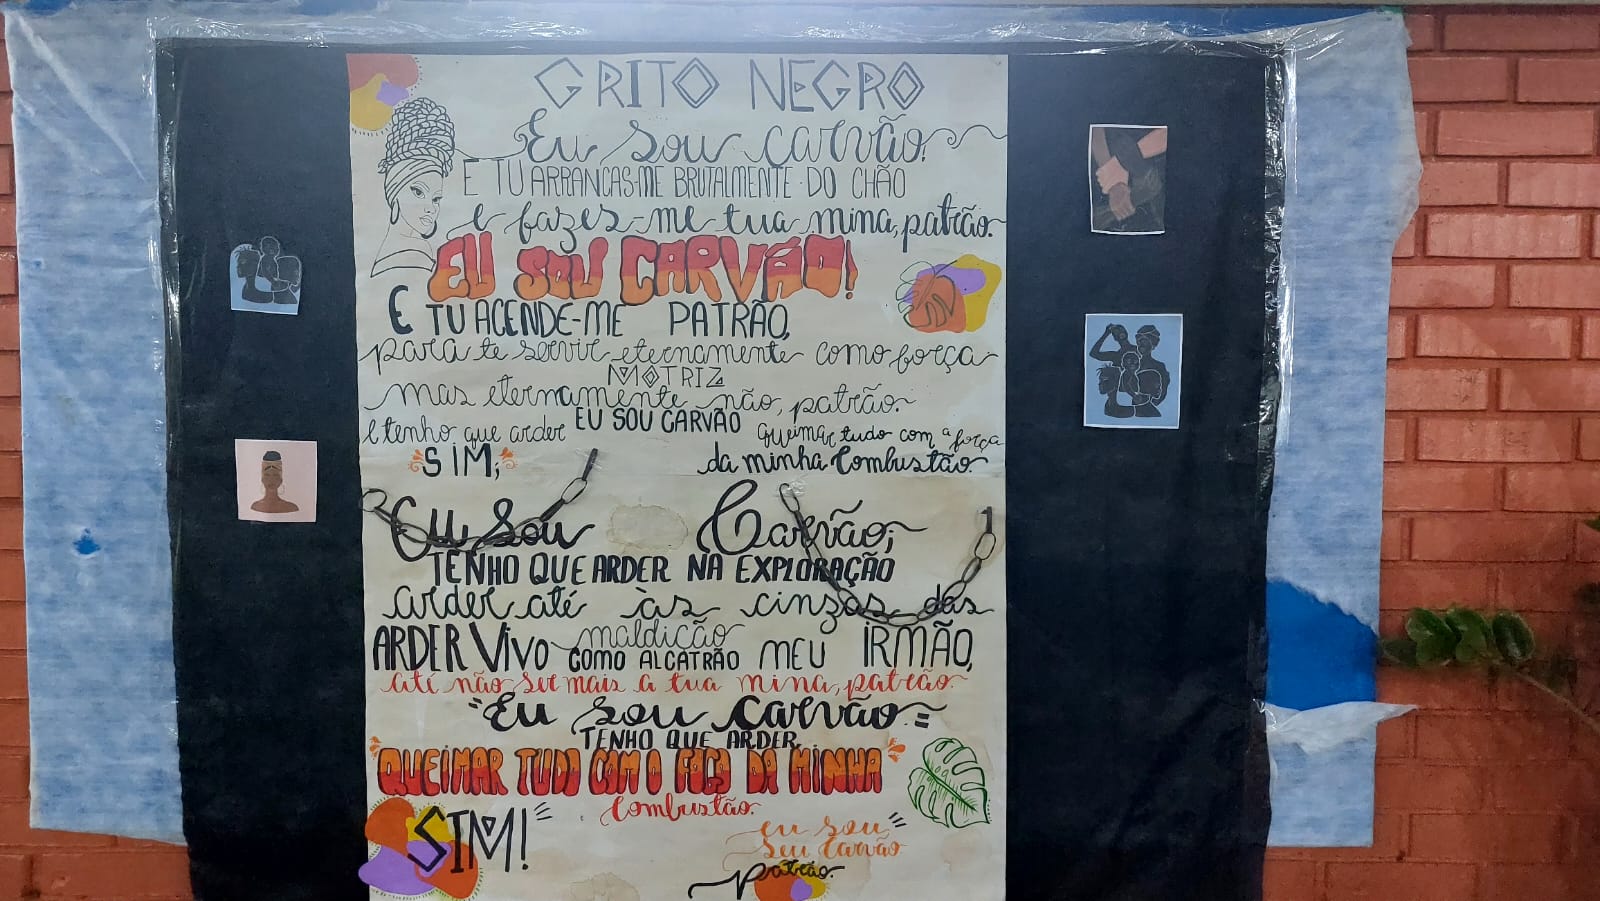 GRITO NEGRO
Eu sou carvão.
E TU ARRANCAS-ME BRUTALMENTE DO CHÃO
e fazes-me tua mina, patrão.
EU SOU CARVÃO!
E TU ACENDE-ME PATRÃO,
para te servir eternamente como força
MOTRIZ
mas eternamente não, patrão.
EU SOU CARVÃO
e tenho que arder
SIM;
queimar tudo com a força
da minha Combustão.
Eu Sou Carvão;
TENHO QUE ARDER NA EXPLORAÇÃO
arder até às cinzas das
maldição
ARDER VIVO COMO ALCATRÃO MEU IRMÃO,
até não ser mais a tua mina, patrão.
"Eu sou carvão.=
TENHO QUE ARDER
QUEIMAR TUDO COM O FOGO DA MINHA
Combustão.
SIM!
eu sou
seu carvão
patrão.